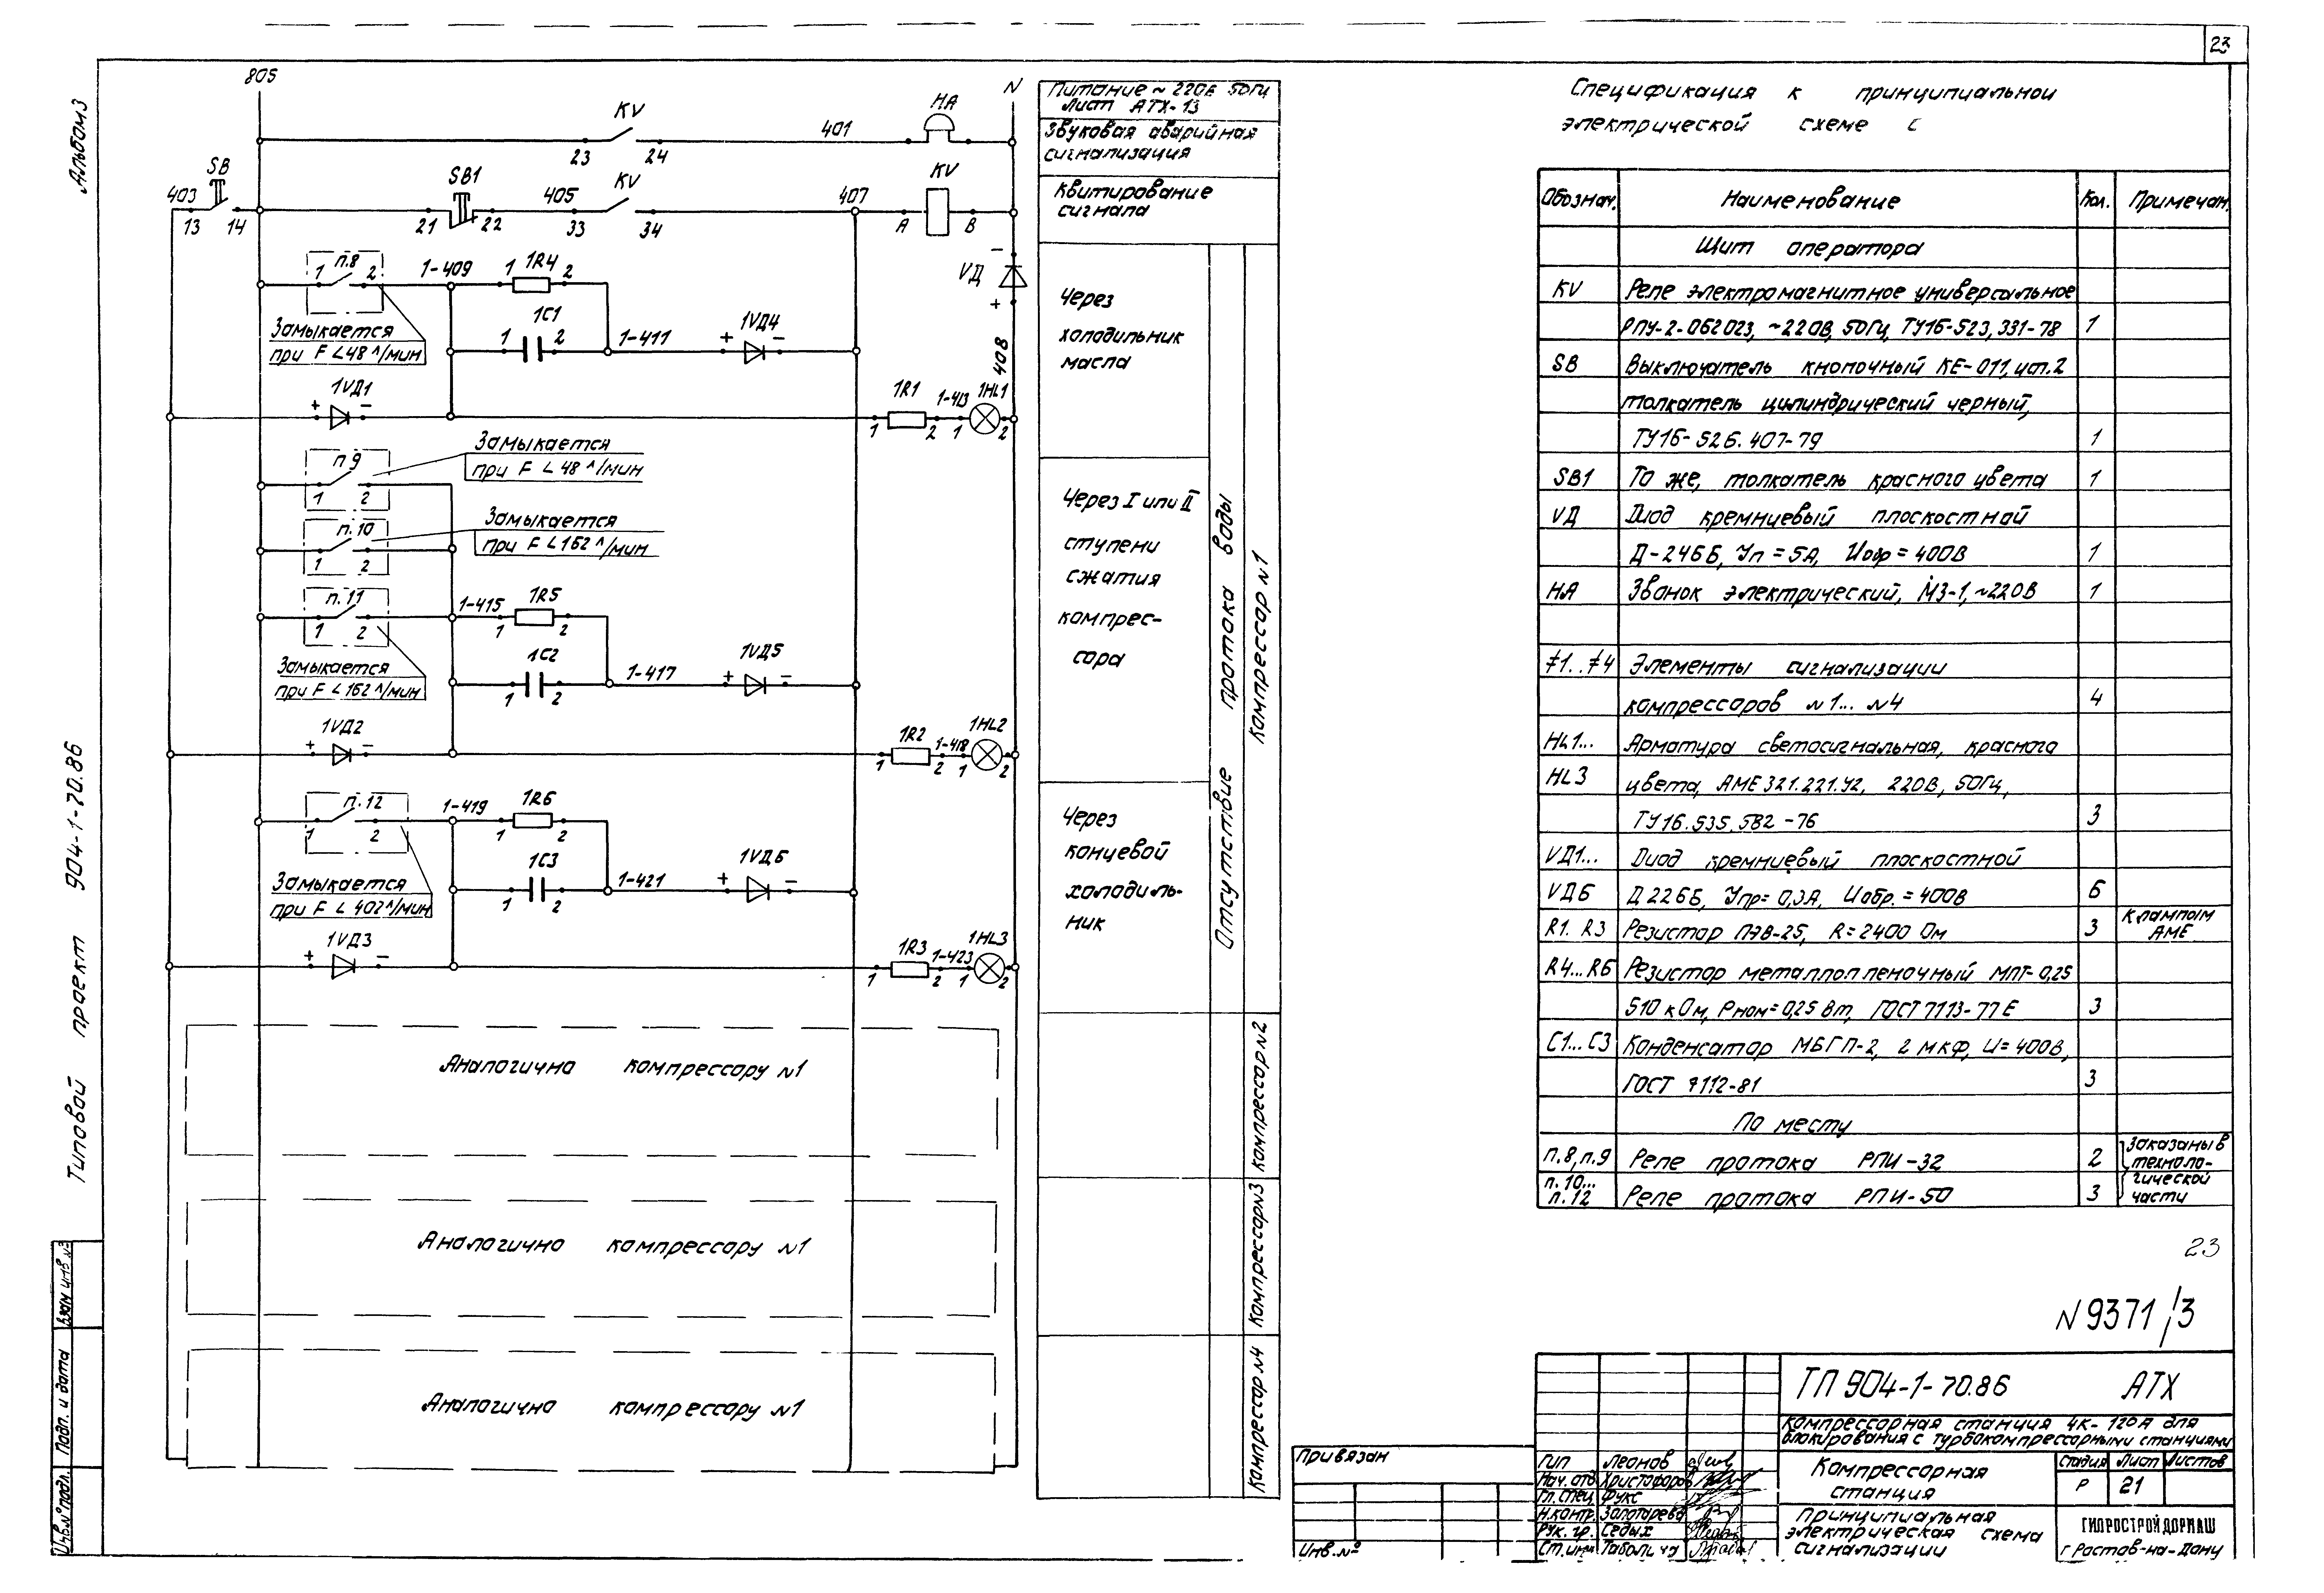 23
Альбом 3
Типовой проект 904-1-70.86
Взам инв №
Подп. и дата
Инв.№ подл.
805
N
KV
HA
23
24
401
403
SB
13
14
SB1
21
22
405
KV
33
34
407
KV
A
B
п.8
1
2
1-409
1R4
1
2
Замыкается
при F < 48 л/мин
1C1
1
2
1-411
1VД4
+
-
VД
-
+
408
1VД1
+
-
1R1
1
2
1-413
1HL1
1
2
п9
1
2
Замыкается
при F < 48 л/мин
п.10
1
2
Замыкается
при F < 162 л/мин
п.11
1
2
1-415
1R5
1
2
Замыкается
при F < 162 л/мин
1C2
1
2
1-417
1VД5
+
-
1VД2
+
-
1R2
1
2
1-418
1HL2
1
2
п.12
1
2
1-419
1R6
1
2
Замыкается
при F < 402 л/мин
1C3
1
2
1-421
1VД6
+
-
1VД3
+
-
1R3
1
2
1-423
1HL3
1
2
Аналогично компрессору N1
Аналогично компрессору N1
Аналогично компрессору N1
Питание ~ 220В 50Гц
Лист АТХ-13
Звуковая аварийная
сигнализация
Квитирование
сигнала
Через
холодильник
масла
Через I или II
ступени
сжатия
компрес-
сора
Через
концевой
холодиль-
ник
Отсутствие протока воды
Компрессор N1
Компрессор N2
Компрессор N3
Компрессор N4
Спецификация к принципиальной
электрической схеме С
Обознач. Наименование Кол. Примечан.
Щит оператора
KV Реле электромагнитное универсальное
РПУ-2-062023, ~220В, 50Гц, ТУ16-523,331-78 1
SB Выключатель кнопочный КЕ-011, исп.2
толкатель цилиндрический черный,
ТУ16-526.407-79 1
SB1 То же, толкатель красного цвета 1
VД Диод кремниевый плоскостной
Д-246Б, Уп = 5А, Иобр = 400В 1
HA Звонок электрический, МЗ-1, ~220В 1
≠1..≠4 Элементы сигнализации
компрессоров N1... N4 4
HL1... Арматура светосигнальная, красного
HL3 цвета, АМЕ 321.221.У2, 220В, 50Гц,
ТУ16.535.582-76 3
VД1... Диод кремниевый плоскостной
VД6 Д226Б, Упр= 0,3А, Иобр. = 400В 6
R1. R3 Резистор ПЭВ-25, R = 2400 Ом 3 К лампам
АМЕ
R4...R6 Резистор металлопленочный МЛТ-0,25
510 кОм, Рном = 0,25 Вт, ГОСТ 7113-77Е 3
C1...C3 Конденсатор МБГП-2, 2 мкф, U = 400В,
ГОСТ 7112-81 3
По месту
п.8, п.9 Реле протока РПИ-32 2 Заказаны в
техноло-
п.10...
п.12 Реле протока РПИ-50 3 гической
части
23
N 9371/3
ТП 904-1-70.86 АТХ
Компрессорная станция 4К-120А для
блокирования с турбокомпрессорными станциями
Привязан
Инв.№
ГИП Леонов
Нач.отд Христофоров
Гл.спец Фукс
Н.контр. Золотарева
Рук. гр. Седых
Ст.инж
Компрессорная
станция
Стадия Лист Листов
Р 21
Принципиальная
электрическая схема
сигнализации
ГИПРОСТРОЙДОРМАШ
г Ростов-на-Дону